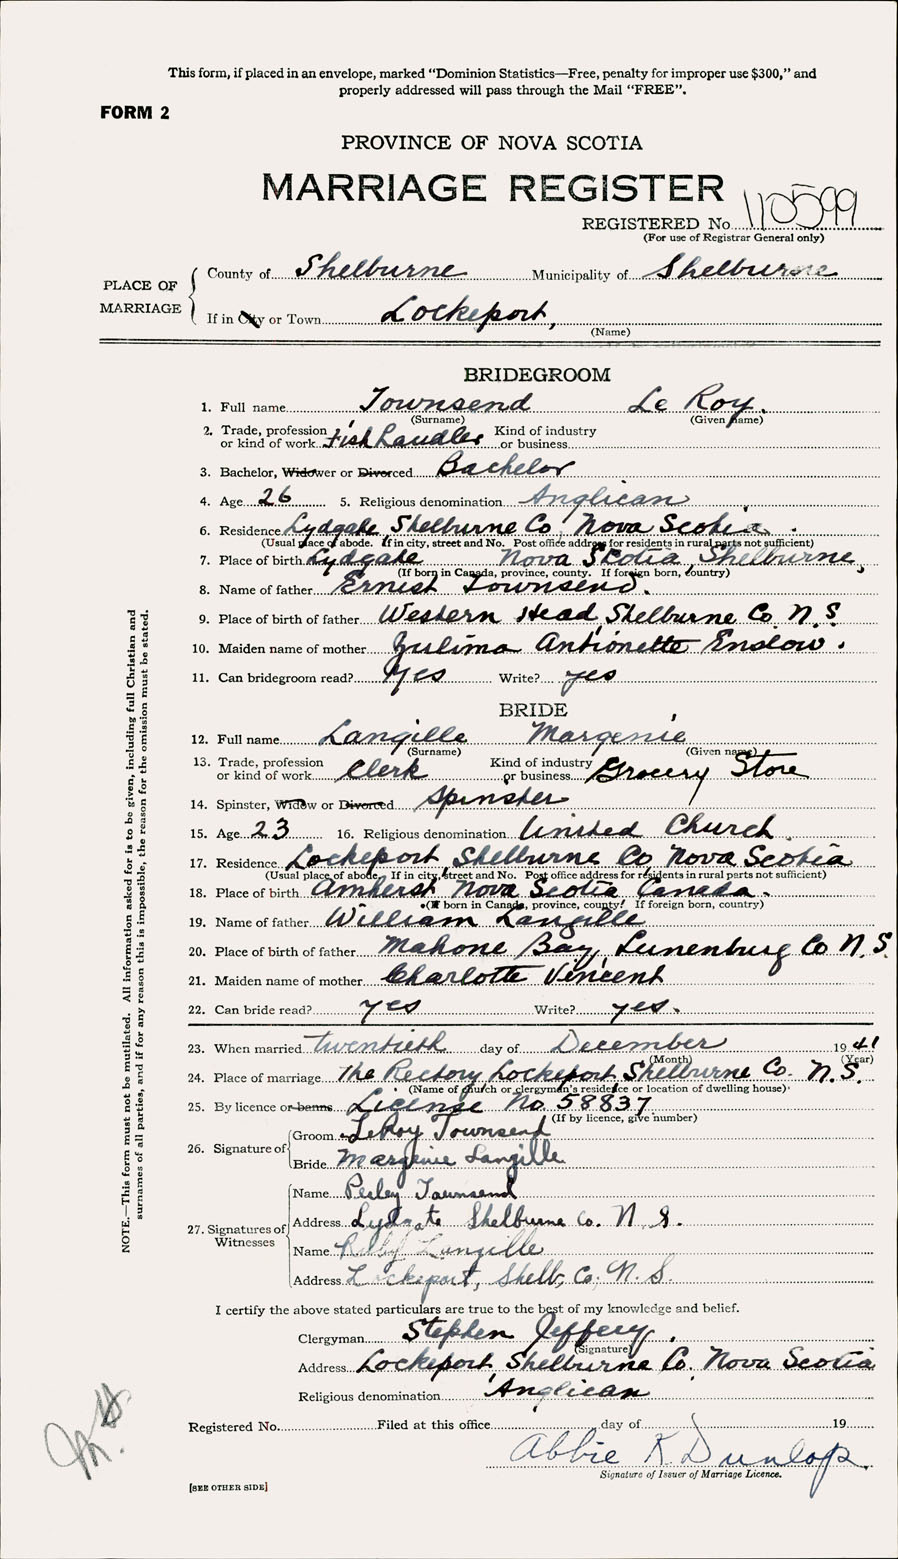 This form, if placed in an envelope, marked “Dominion Statistics—Free, penalty for improper use $300,” and
properly addressed will pass through the Mail “FREE”.
FORM 2
PROVINCE OF NOVA SCOTIA
MARRIAGE REGISTER
REGISTERED No. 110599
(For use of Registrar General only)
PLACE OF MARRIAGE
County of Shelburne Municipality of Shelburne
If in City or Town Lockeport,
(Name)
BRIDEGROOM
1. Full name Townsend Le Roy.
(Surname) (Given name)
2. Trade, profession or kind of work Fish Handler Kind of industry or business
3. Bachelor, Widower or Divorced Bachelor
4. Age 26 5. Religious denomination Anglican
6. Residence Lydgate Shelburne Co Nova Scotia.
(Usual place of abode. If in city, street and No. Post office address for residents in rural parts not sufficient)
7. Place of birth Lydgate Nova Scotia, Shelburne,
(If born in Canada, province, county. If foreign born, country)
8. Name of father Ernest Townsend.
9. Place of birth of father Western Head, Shelburne Co. N.S.
10. Maiden name of mother Zulima Antionette Enslow.
11. Can bridegroom read? Yes Write? yes
BRIDE
12. Full name Langille Margenie
(Surname) (Given name)
13. Trade, profession or kind of work Clerk Kind of industry or business Grocery Store
14. Spinster, Widow or Divorced Spinster
15. Age 23 16. Religious denomination United Church.
17. Residence Lockeport, Shelburne Co Nova Scotia
(Usual place of abode. If in city, street and No. Post office address for residents in rural parts not sufficient)
18. Place of birth Amherst Nova Scotia Canada.
(If born in Canada, province, county. If foreign born, country)
19. Name of father William Langille
20. Place of birth of father Mahone Bay, Lunenburg Co N.S.
21. Maiden name of mother Charlotte Vincent
22. Can bride read? yes Write? yes.
23. When married twentieth day of December 1941
(Month) (Year)
24. Place of marriage The Rectory Lockeport Shelburne Co. N.S.
(Name of church or clergyman's residence or location of dwelling house)
25. By licence or banns License No. 58837
(If by licence, give number)
26. Signature of
Groom LeRoy Townsend
Bride Margenie Langille
27. Signatures of Witnesses
Name Perley Townsend
Address Lydgate Shelburne Co. N.S.
Name Ruby Langille
Address Lockeport, Shelb, Co. N.S.
I certify the above stated particulars are true to the best of my knowledge and belief.
Clergyman Stephen Jeffery.
(Signature)
Address Lockeport, Shelburne Co. Nova Scotia
Religious denomination Anglican
Registered No. Filed at this office day of 19
Abbie K. Dunlop.
Signature of Issuer of Marriage Licence.
[SEE OTHER SIDE]
NOTE.—This form must not be mutilated. All information asked for is to be given, including full Christian and
surnames of all parties, and if for any reason this is impossible, the reason for the omission must be stated.